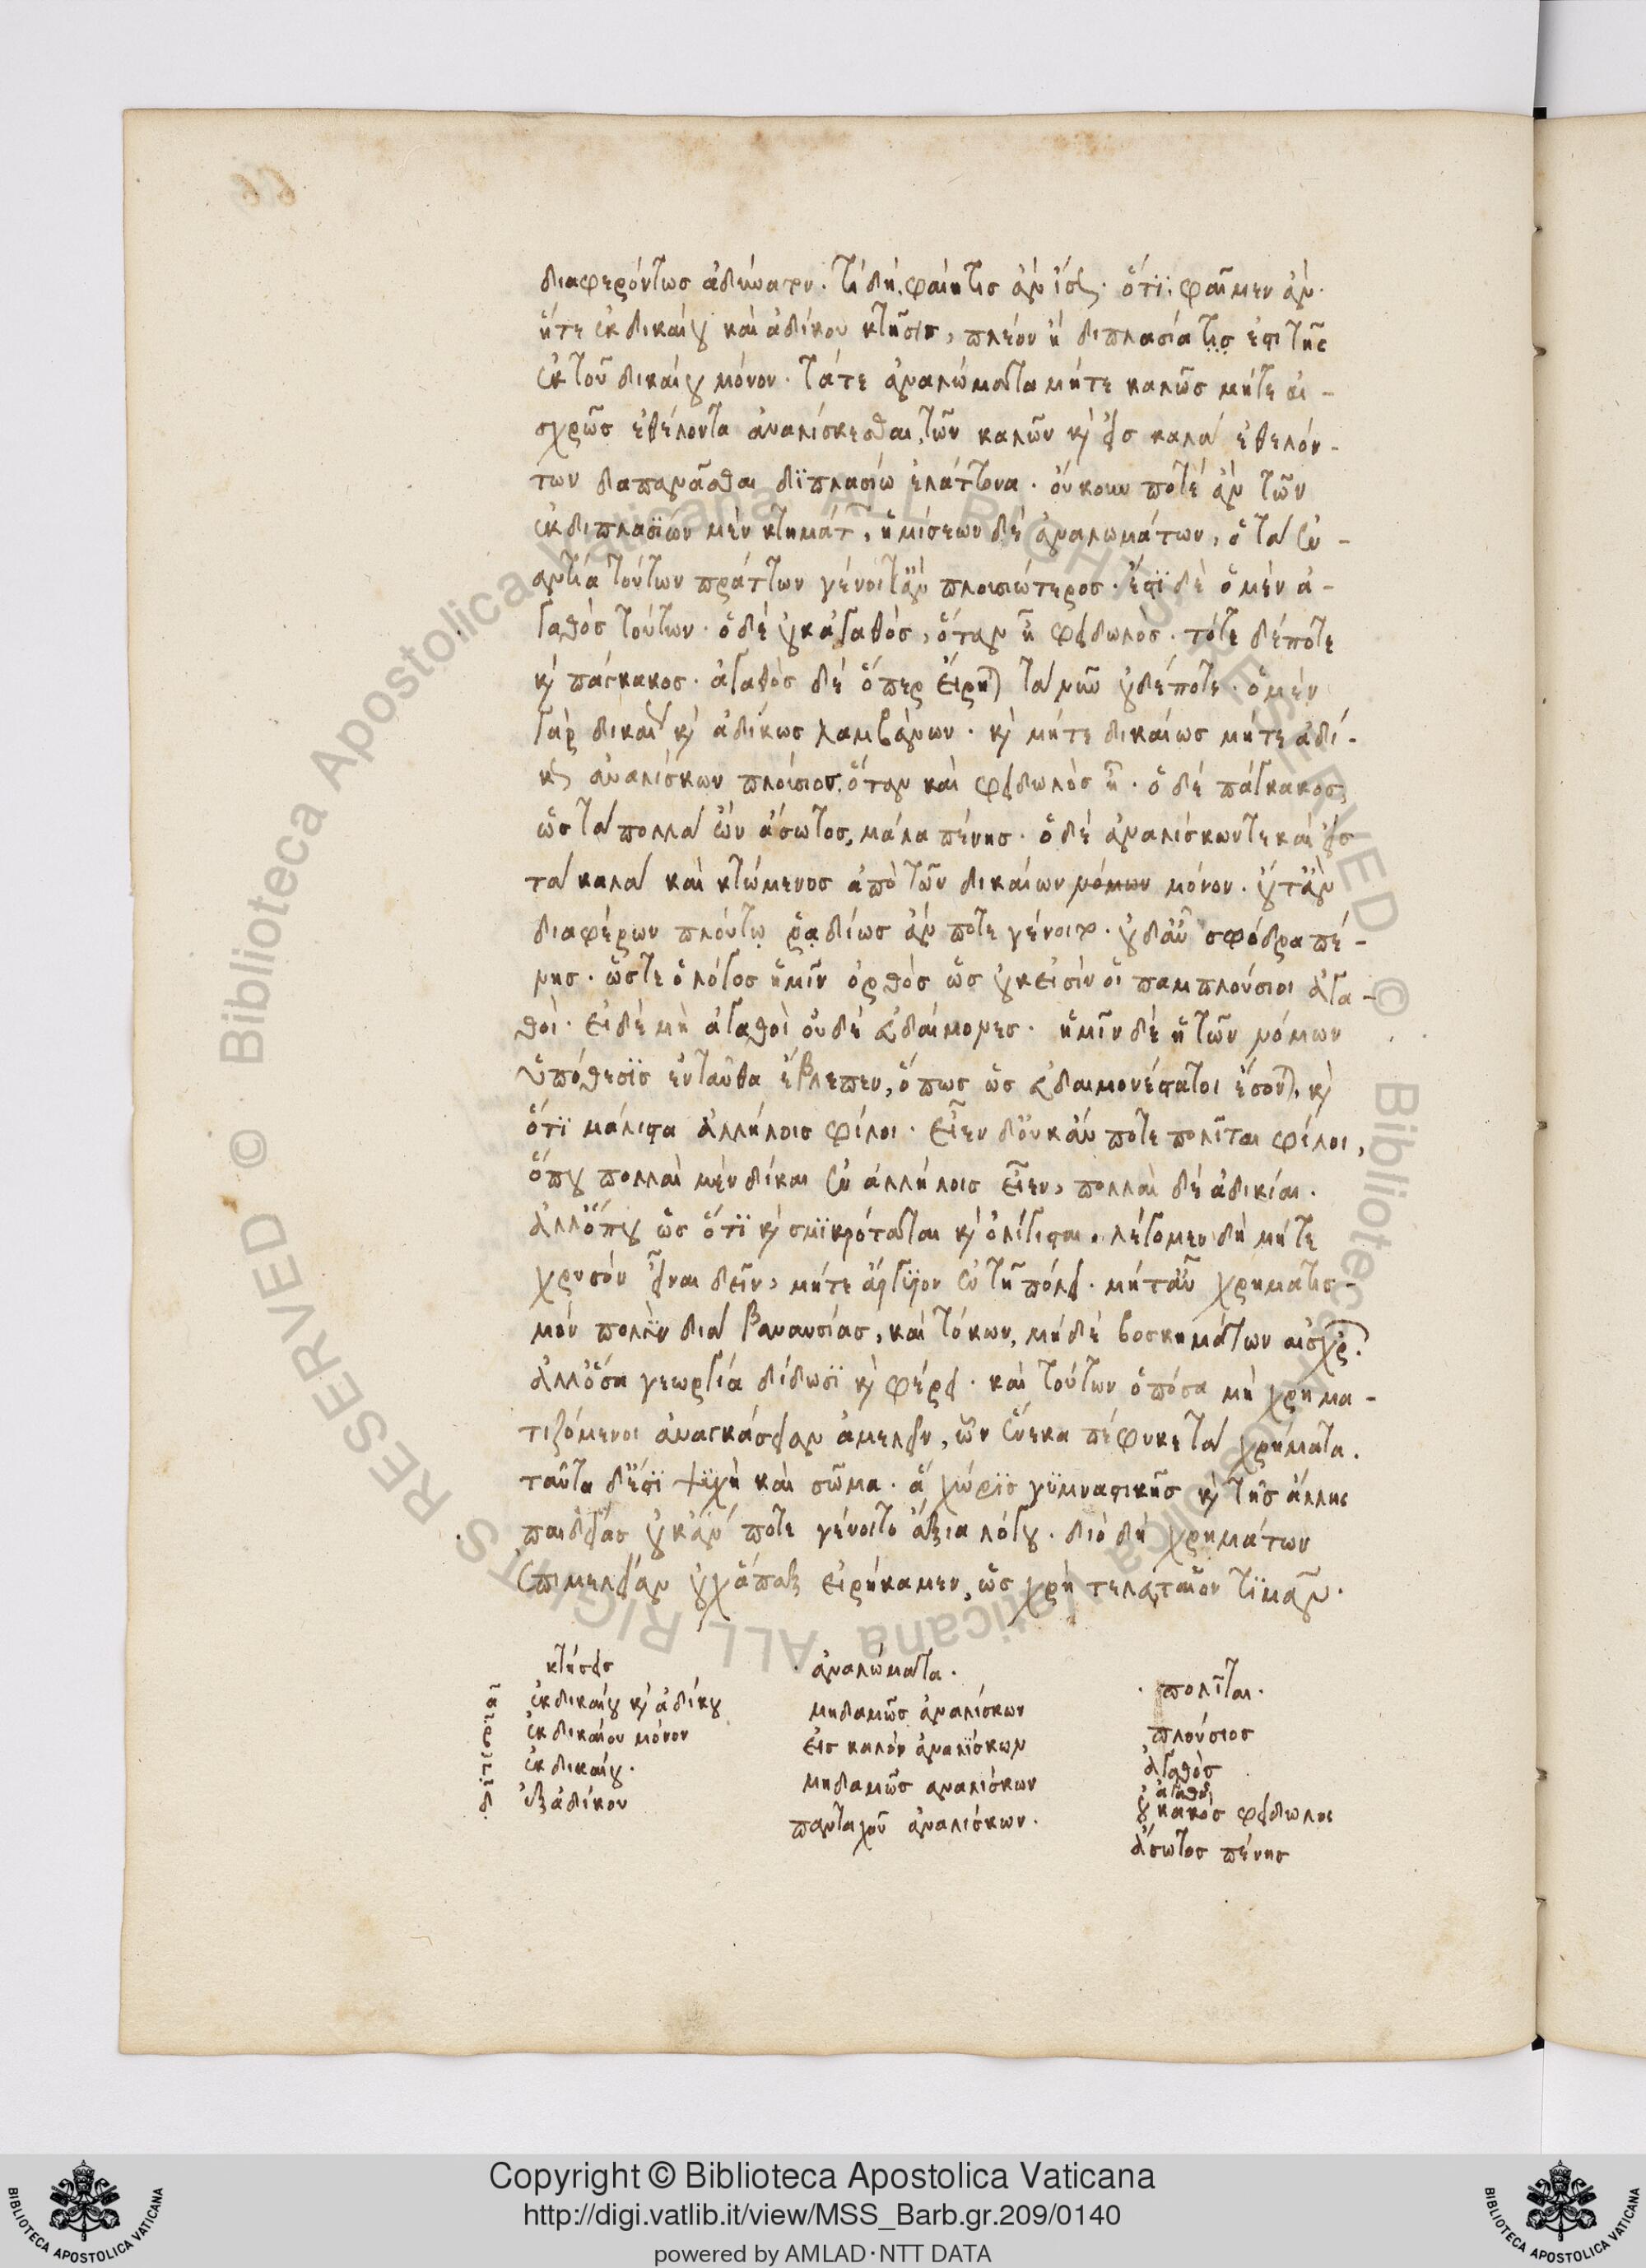 διαφερόντως ἀδύνατον. τί δή, φαίη τις ἂν ἴσως. ὅτι, φαῖμεν ἄν.
ἥτε ἐκ δικαίου καὶ ἀδίκου κτῆσις, πλέον ἢ διπλασία τις ἐστὶ τῆς
ἐκ τοῦ δικαίου μόνον. τά τε ἀναλώματα μήτε καλῶς μήτε αἰ-
σχρῶς ἐθέλοντα ἀναλίσκεσθαι, τῶν καλῶν κὶ εἰς καλὰ ἐθελόν-
των δαπανᾶσθαι διπλασίω ἐλάττονα. οὔκουν ποτὲ ἂν τῶν
ἐκ διπλασίων μὲν κτημάτων, ἡμίσεων δὲ ἀναλωμάτων, ὁ τὰ ἐν-
αντία τούτων πράττων γένοιτ' ἂν πλουσιώτερος. ἔστι δὲ ὁ μὲν ἀ-
γαθὸς τούτων. ὁ δὲ οὐ κἀγαθὸς, ὅταν ᾖ φειδωλὸς. τότε δέ ποτε
κὶ πάγκακος. ἀγαθὸς δὲ ὅπερ εἴρηται τὰ νῦν οὐδέποτε. ὁ μὲν
γὰρ δικαίως κὶ ἀδίκως λαμβάνων. κὶ μήτε δικαίως μήτε ἀδί-
κως ἀναλίσκων πλούσιος, ὅταν καὶ φειδωλὸς ᾖ. ὁ δὲ πάγκακος,
ὡς τὰ πολλὰ ὢν ἄσωτος, μάλα πένης. ὁ δὲ ἀναλίσκων τε καὶ εἰς
τὰ καλὰ καὶ κτώμενος ἀπὸ τῶν δικαίων νόμων μόνον. οὔτ' ἂν
διαφέρων πλούτῳ ῥᾳδίως ἄν ποτε γένοιτο. οὐδ' αὖ σφόδρα πέ-
νης. ὥστε ὁ λόγος ἡμῖν ὀρθὸς ὡς οὐκ εἰσὶν οἱ παμπλούσιοι ἀγα-
θοὶ. εἰ δὲ μὴ ἀγαθοὶ οὐδὲ εὐδαίμονες. ἡμῖν δὲ ἡ τῶν νόμων
ὑπόθεσις ἐνταῦθα ἔβλεπεν, ὅπως ὡς εὐδαιμονέστατοι ἔσονται, κὶ
ὅτι μάλιστα ἀλλήλοις φίλοι. εἶεν δ' οὐκ ἄν ποτε πολῖται φίλοι,
ὅπου πολλαὶ μὲν δίκαι ἐν ἀλλήλοις εἶεν, πολλαὶ δὲ ἀδικίαι.
ἀλλ' ὅπου ὡς ὅτι κὶ σμικρόταται κὶ ὀλίγισται. λέγομεν δὴ μήτε
χρυσὸν εἶναι δεῖν, μήτε ἄργυρον ἐν τῇ πόλει. μήτ' αὖ χρηματισ-
μὸν πολὺν διὰ βαναυσίας, καὶ τόκων, μηδὲ βοσκημάτων αἰσχρῶν.
ἀλλ' ὅσα γεωργία δίδωσι κὶ φέρει. καὶ τούτων ὁπόσα μὴ χρημα-
τιζόμενοι ἀναγκάσειαν ἀμελεῖν, ὧν ἕνεκα πέφυκε τὰ χρήματα.
ταῦτα δ' ἔστι ψυχὴ καὶ σῶμα. ἃ χώρις γυμναστικῆς κὶ τῆς ἄλλης
παιδείας οὐκ ἄν ποτε γένοιτο ἄξια λόγου. διὸ δὴ χρημάτων
ἐπιμέλειαν οὐχ ἅπαξ εἰρήκαμεν, ὡς χρὴ τελευταῖον τιμᾶν.
κτήσεις
ἐκ δικαίου κὶ ἀδίκου
ἐκ δικαίου μόνον
ἐκ δικαίου.
ἐξ ἀδίκου
ἀναλώματα.
μηδαμῶς ἀναλίσκων
εἰς καλὸν ἀναλίσκων
μηδαμῶς ἀναλίσκων
πανταχοῦ ἀναλίσκων.
πολῖται.
πλούσιος
ἀγαθὸς
ἀγαθὸς
οὐ κακὸς φειδωλὸς
ἄσωτος πένης